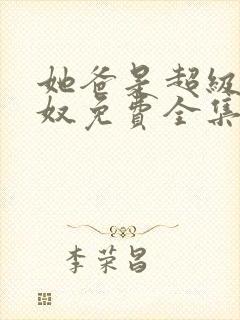 她爸是超级
奴免费全集
李荣昌